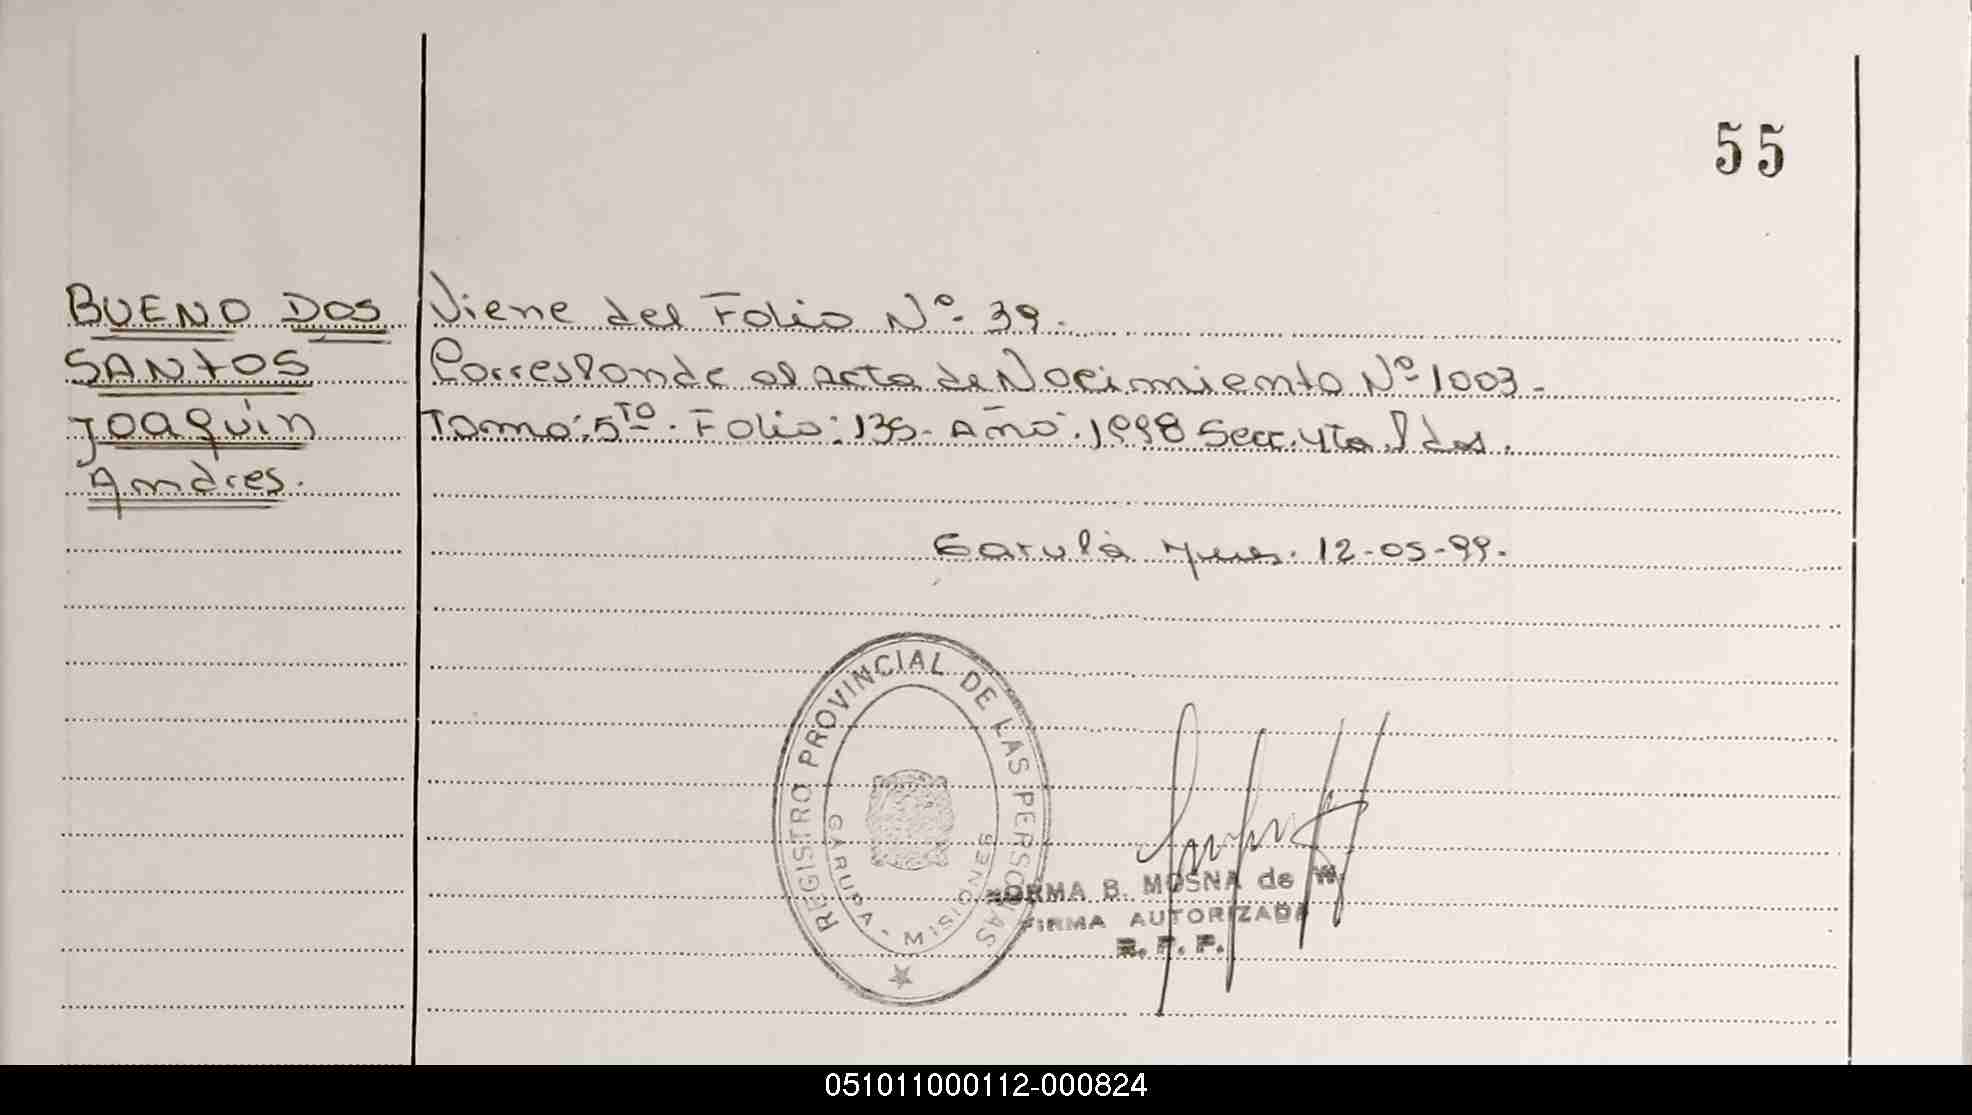 55
BUENO DOS
SANTOS
Joaquín
Andres.
Viene del Folio Nº 39.
Corresponde al acta de Nacimiento Nº 1003.
Tomo: 5TO. Folio: 135. Año: 1998 Secc. 4ta. Pdas.
Garupá 12-05-99.
REGISTRO PROVINCIAL DE LAS PERSONAS
GARUPA - MISIONES
NORMA B. MOSNA de
FIRMA AUTORIZADA
051011000112-000824